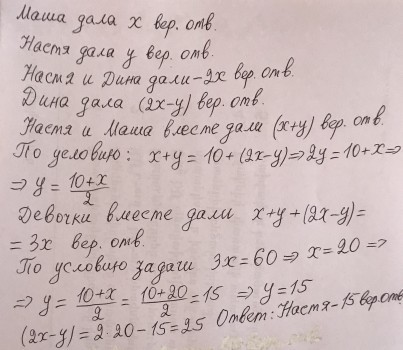 Маша дала x вер. отв.
Настя дала y вер. отв.
Настя и Дина дали - 2x вер. отв.
Дина дала (2x-y) вер. отв.
Настя и Маша вместе дали (x+y) вер. отв.
По условию: x+y = 10 + (2x-y) ⇒ 2y = 10+x ⇒
⇒ y = \frac{10+x}{2}
Девочки вместе дали x+y+(2x-y)=
= 3x вер. отв.
По условию задачи 3x = 60 ⇒ x = 20 ⇒
⇒ y = \frac{10+x}{2} = \frac{10+20}{2} = 15 ⇒ y = 15
(2x-y) = 2·20-15 = 25 Ответ: Настя - 15 вер. отв